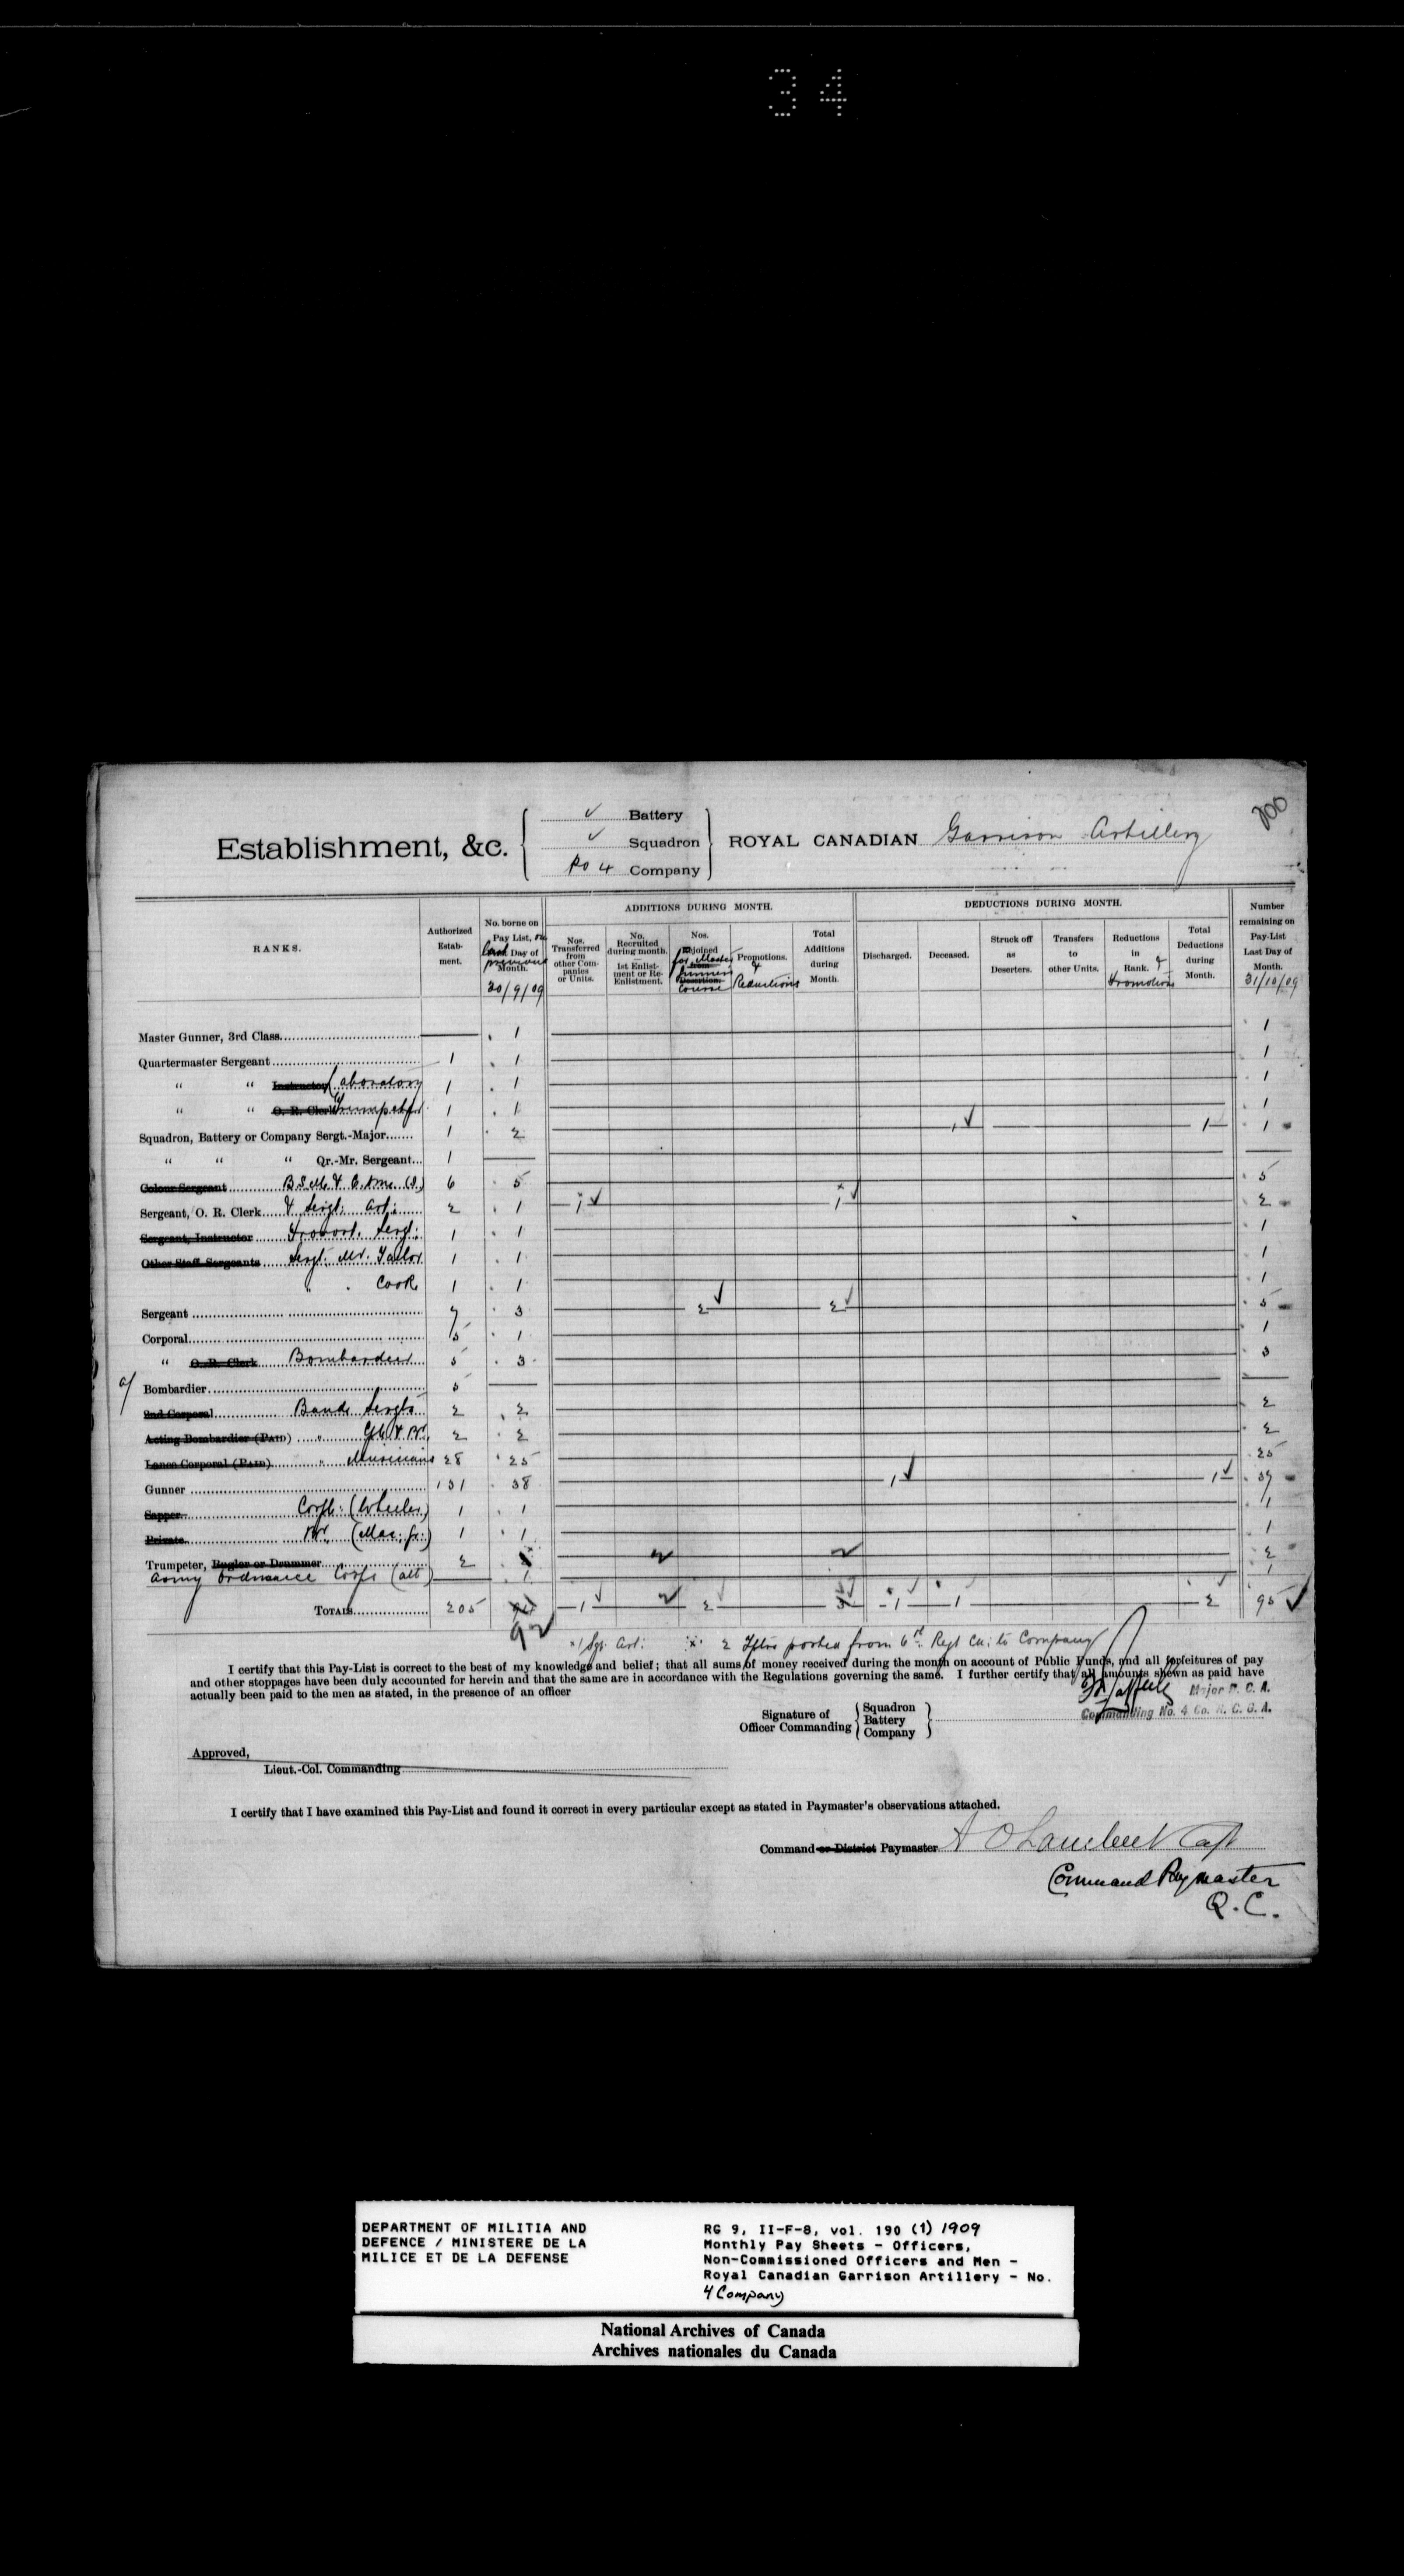 34
200
Establishment, &c.
✓ Battery
✓ Squadron
No 4 Company
ROYAL CANADIAN Garrison Artillery
RANKS.
Authorized Establishment.
No. borne on Pay List, on last Day of previous Month. 30/9/09
ADDITIONS DURING MONTH.
Nos. Transferred from other Companies or Units.
No. Recruited during month. 1st Enlistment or Re-Enlistment.
Nos. rejoined from Master Gunners Course
Promotions. & Reductions
Total Additions during Month.
DEDUCTIONS DURING MONTH.
Discharged.
Deceased.
Struck off as Deserters.
Transfers to other Units.
Reductions in Rank. & Promotions
Total Deductions during Month.
Number remaining on Pay-List Last Day of Month. 31/10/09
Master Gunner, 3rd Class 1 1
Quartermaster Sergeant 1 1 1
" " Instructor Laboratory 1 1 1
" " O. R. Clerk Trumpeter 1 1 1
Squadron, Battery or Company Sergt.-Major 1 2 1 ✓ 1 1
" " " Qr.-Mr. Sergeant 1
Colour Sergeant 6 5 5
Sergeant, O. R. Clerk & Sergt. Art: 2 1 1 ✓ 1 ✓ 2
Sergeant, Instructor Provost. Sergt: 1 1 1
Other Staff Sergeants Sergt. Mr. Tailor 1 1 1
" " Cook 1 1 1
Sergeant 7 3 2 ✓ 2 ✓ 5
Corporal 5 1 1
" O. R. Clerk Bombardier 5 3 3
a/ Bombardier 5
2nd Corporal Band Sergts 2 2 2
Acting Bombardier (PAID) " 2 2 2
Lance Corporal (PAID) " Musicians 28 25 25
Gunner 131 38 1 ✓ 1 ✓ 37
Sapper Corpl: (Wheeler) 1 1 1
Private Br. 1 1 1
Trumpeter, Bugler or Drummer 2 2
Army Ordnance Corps (att) 1 1
TOTALS 205 92 1 ✓ 2 1 ✓ 1 2 95 ✓
× 1 Sgt. Art: 2 posted from 6th Regt CA: to Company
I certify that this Pay-List is correct to the best of my knowledge and belief; that all sums of money received during the month on account of Public Funds, and all forfeitures of pay
and other stoppages have been duly accounted for herein and that the same are in accordance with the Regulations governing the same. I further certify that all amounts shown as paid have
actually been paid to the men as stated, in the presence of an officer
Major R. C. A.
Commanding No. 4 Co. R. C. G. A.
Signature of Officer Commanding
Squadron
Battery
Company
Approved,
Lieut.-Col. Commanding
I certify that I have examined this Pay-List and found it correct in every particular except as stated in Paymaster's observations attached.
Command or District Paymaster A O Lambert Capt
Command Paymaster
Q. C.
DEPARTMENT OF MILITIA AND
DEFENCE / MINISTERE DE LA
MILICE ET DE LA DEFENSE
RG 9, II-F-8, vol. 190 (1) 1909
Monthly Pay Sheets - Officers,
Non-Commissioned Officers and Men -
Royal Canadian Garrison Artillery - No.
4 Company
National Archives of Canada
Archives nationales du Canada